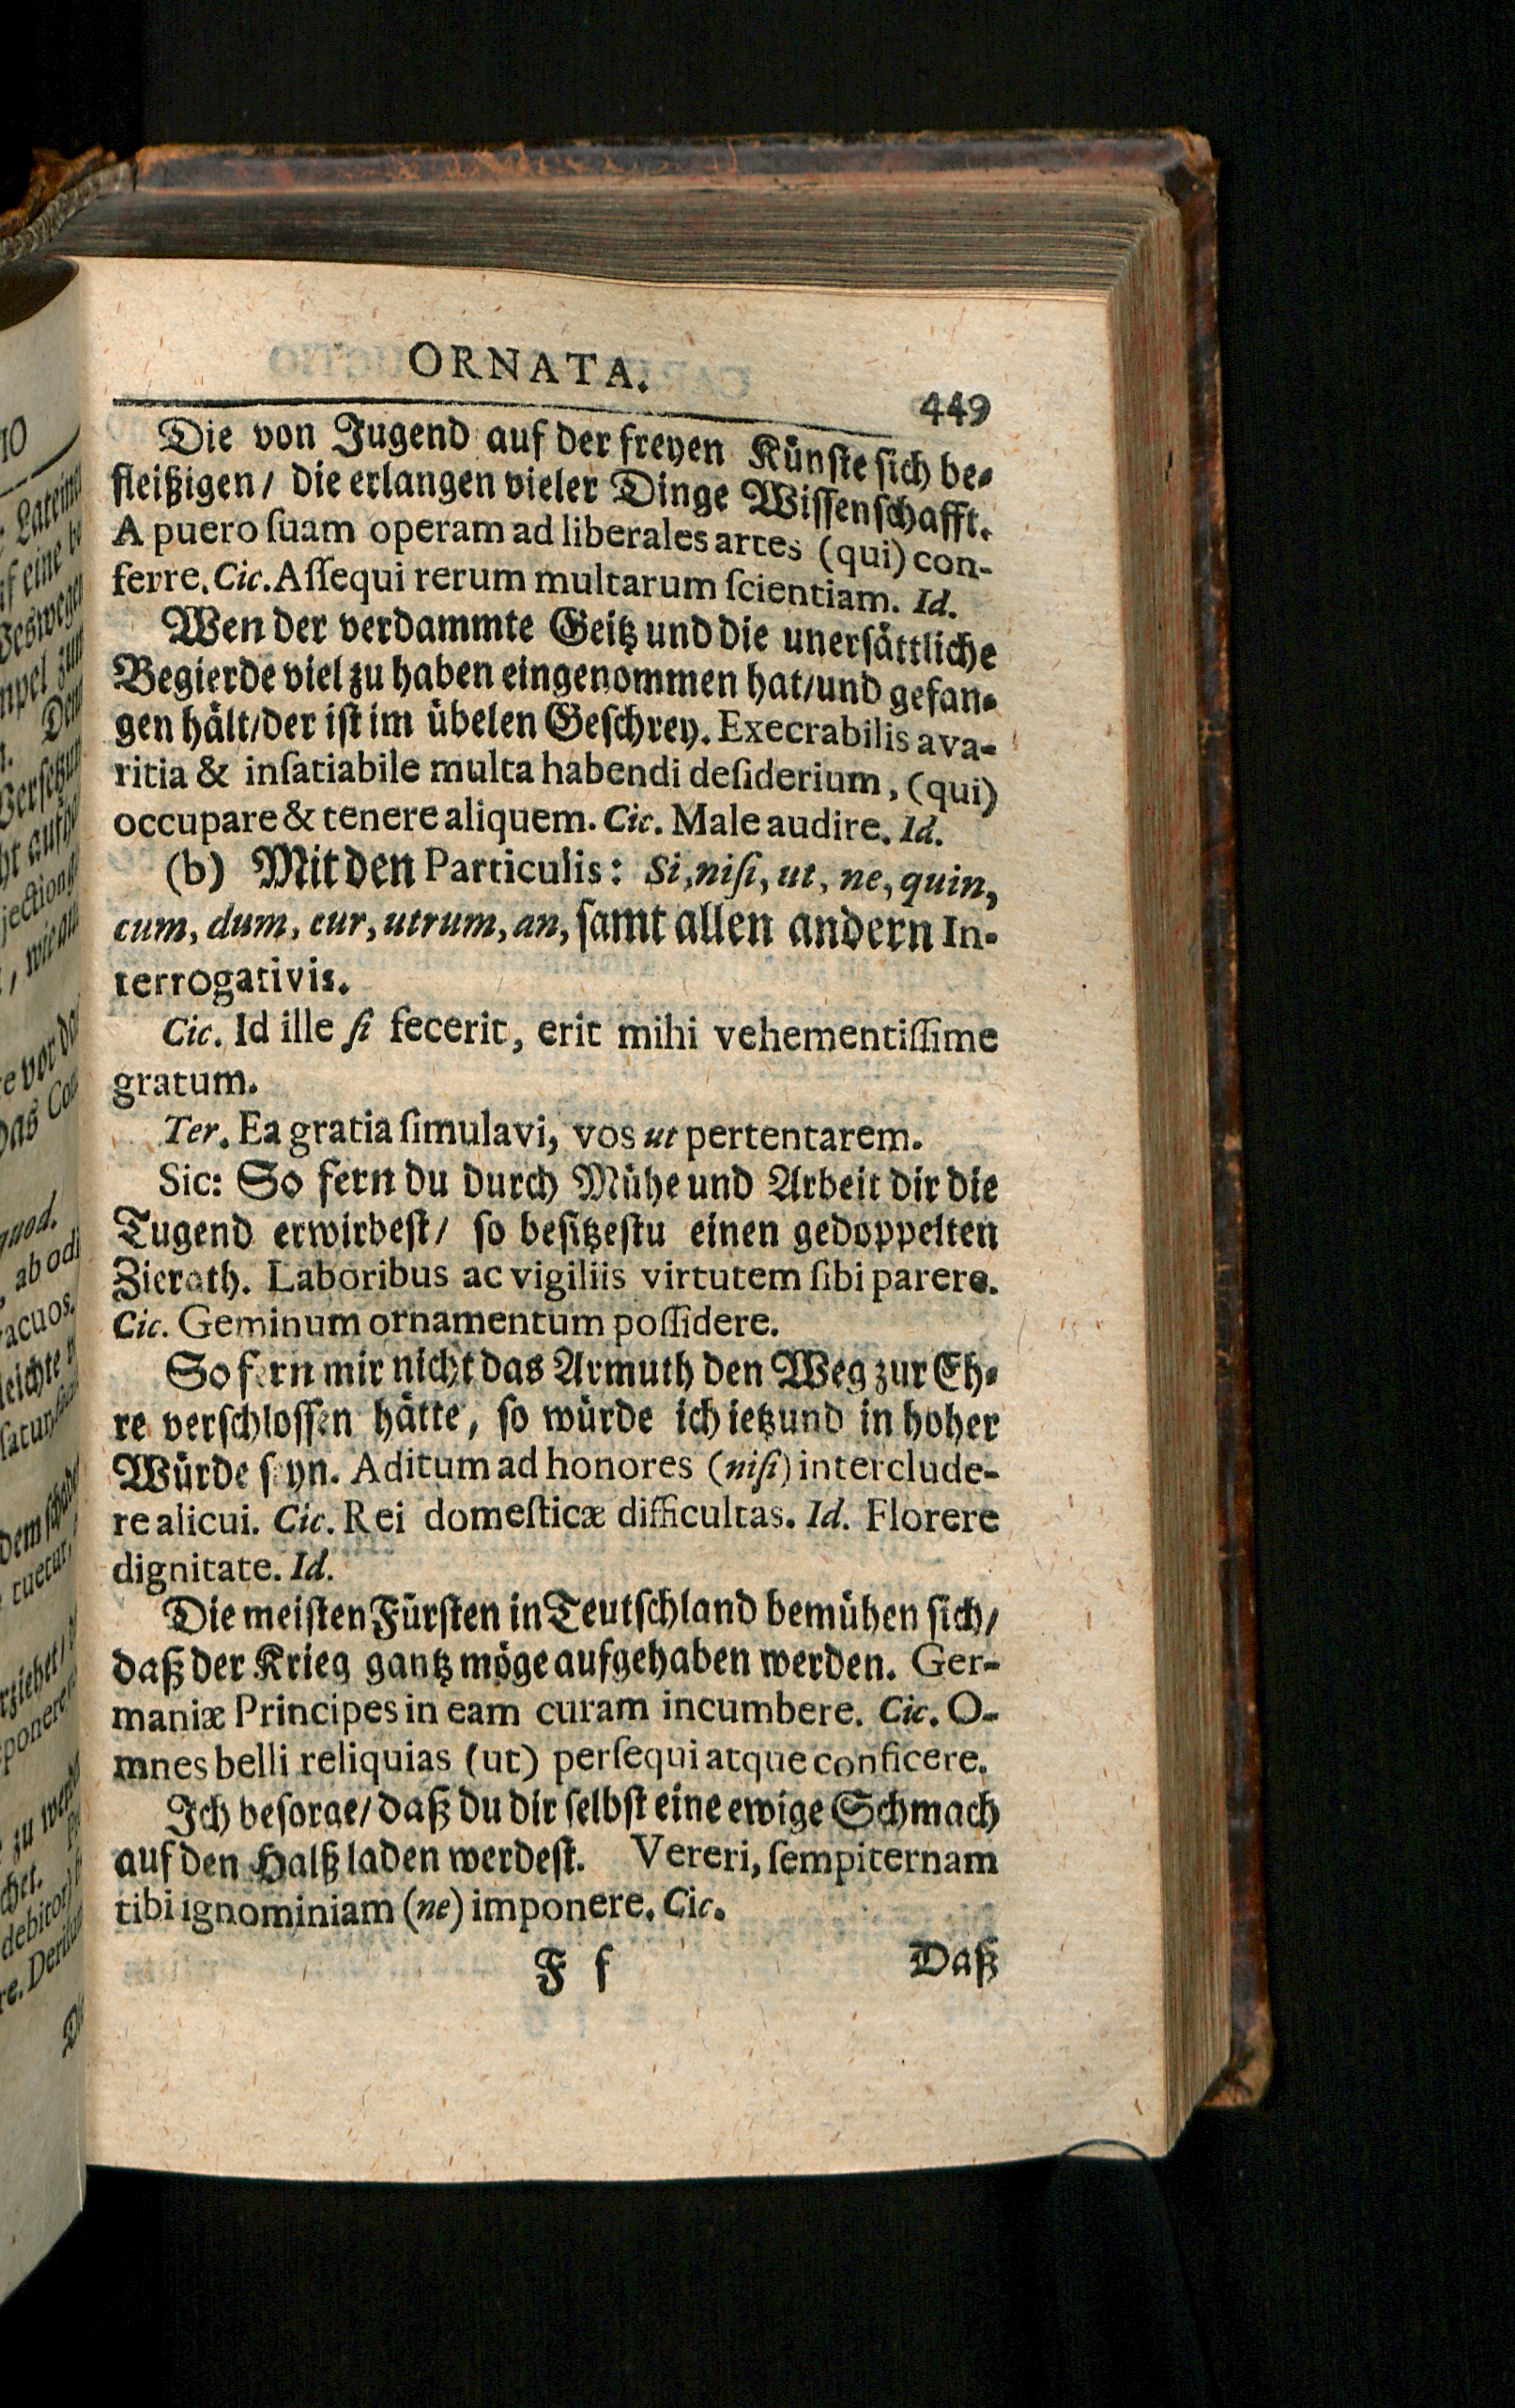 ORNATA.
449
Die von Jugend auf der freyen Künste sich be-
fleißigen/ die erlangen vieler Dinge Wissenschafft.
A puero ſuam operam ad liberales artes (qui) con-
ferre. Cic. Aſſequi rerum multarum ſcientiam. Id.
Wen der verdammte Geitz und die unersättliche
Begierde viel zu haben eingenommen hat/und gefan-
gen hält/der ist im übelen Geschrey. Execrabilis ava-
ritia & inſatiabile multa habendi deſiderium, (qui)
occupare & tenere aliquem. Cic. Male audire. Id.
(b) Mit den Particulis: Si, niſi, ut, ne, quin,
cum, dum, cur, utrum, an, samt allen andern In-
terrogativis.
Cic. Id ille ſi fecerit, erit mihi vehementiſſime
gratum.
Ter. Ea gratia ſimulavi, vos ut pertentarem.
Sic: So fern du durch Mühe und Arbeit dir die
Tugend erwirbest/ so besitzestu einen gedoppelten
Zierath. Laboribus ac vigiliis virtutem ſibi parere.
Cic. Geminum ornamentum poſſidere.
So fern mir nicht das Armuth den Weg zur Eh-
re verschlossen hätte, so würde ich ietzund in hoher
Würde seyn. Aditum ad honores (niſi) interclude-
re alicui. Cic. Rei domeſticæ difficultas. Id. Florere
dignitate. Id.
Die meisten Fürsten in Teutschland bemühen sich/
daß der Krieg gantz möge aufgehaben werden. Ger-
maniæ Principes in eam curam incumbere. Cic. O-
mnes belli reliquias (ut) perſequi atque conficere.
Ich besorge/daß du dir selbst eine ewige Schmach
auf den Halß laden werdest. Vereri, ſempiternam
tibi ignominiam (ne) imponere. Cic.
F f
Daß